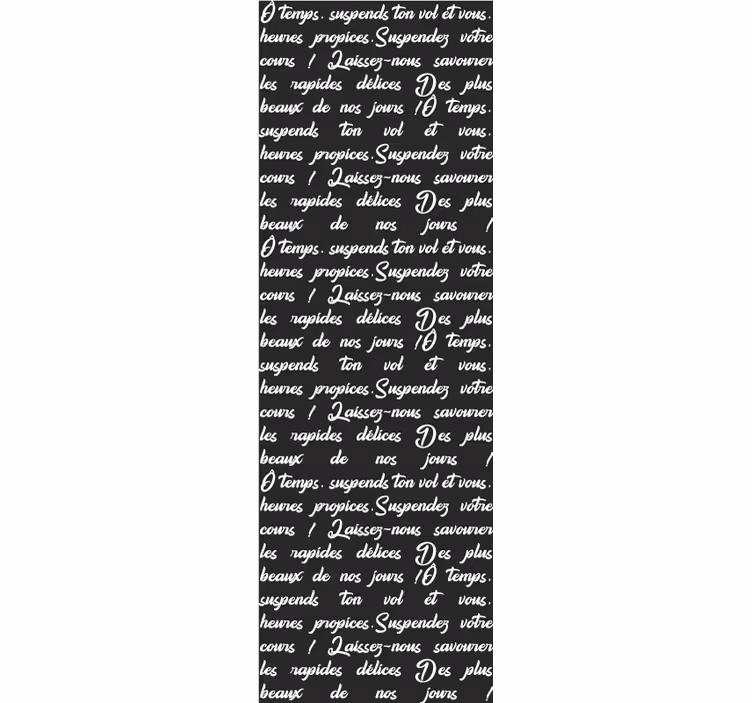 Ô temps. suspends ton vol et vous.
heures propices.Suspendez votre
cours ! Laissez-nous savourer
les rapides délices Des plus
beaux de nos jours !Ô temps.
suspends ton vol et vous.
heures propices.Suspendez votre
cours ! Laissez-nous savourer
les rapides délices Des plus
beaux de nos jours !
Ô temps. suspends ton vol et vous.
heures propices.Suspendez votre
cours ! Laissez-nous savourer
les rapides délices Des plus
beaux de nos jours !Ô temps.
suspends ton vol et vous.
heures propices.Suspendez votre
cours ! Laissez-nous savourer
les rapides délices Des plus
beaux de nos jours !
Ô temps. suspends ton vol et vous.
heures propices.Suspendez votre
cours ! Laissez-nous savourer
les rapides délices Des plus
beaux de nos jours !Ô temps.
suspends ton vol et vous.
heures propices.Suspendez votre
cours ! Laissez-nous savourer
les rapides délices Des plus
beaux de nos jours !